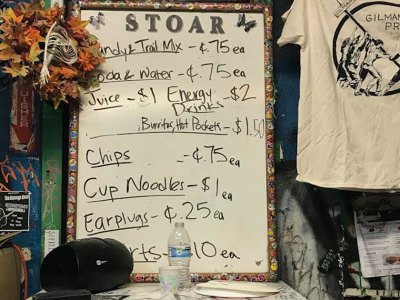 STOAR
Candy & Trail Mix - ¢.75 ea
Soda & Water - ¢.75 ea
Juice - $1 Energy Drinks - $2
Burritos, Hot Pockets - $1.50
Chips - ¢.75 ea
Cup Noodles - $1 ea
Earplugs - ¢.25 ea
rts - 10 ea
GILMAN
PR